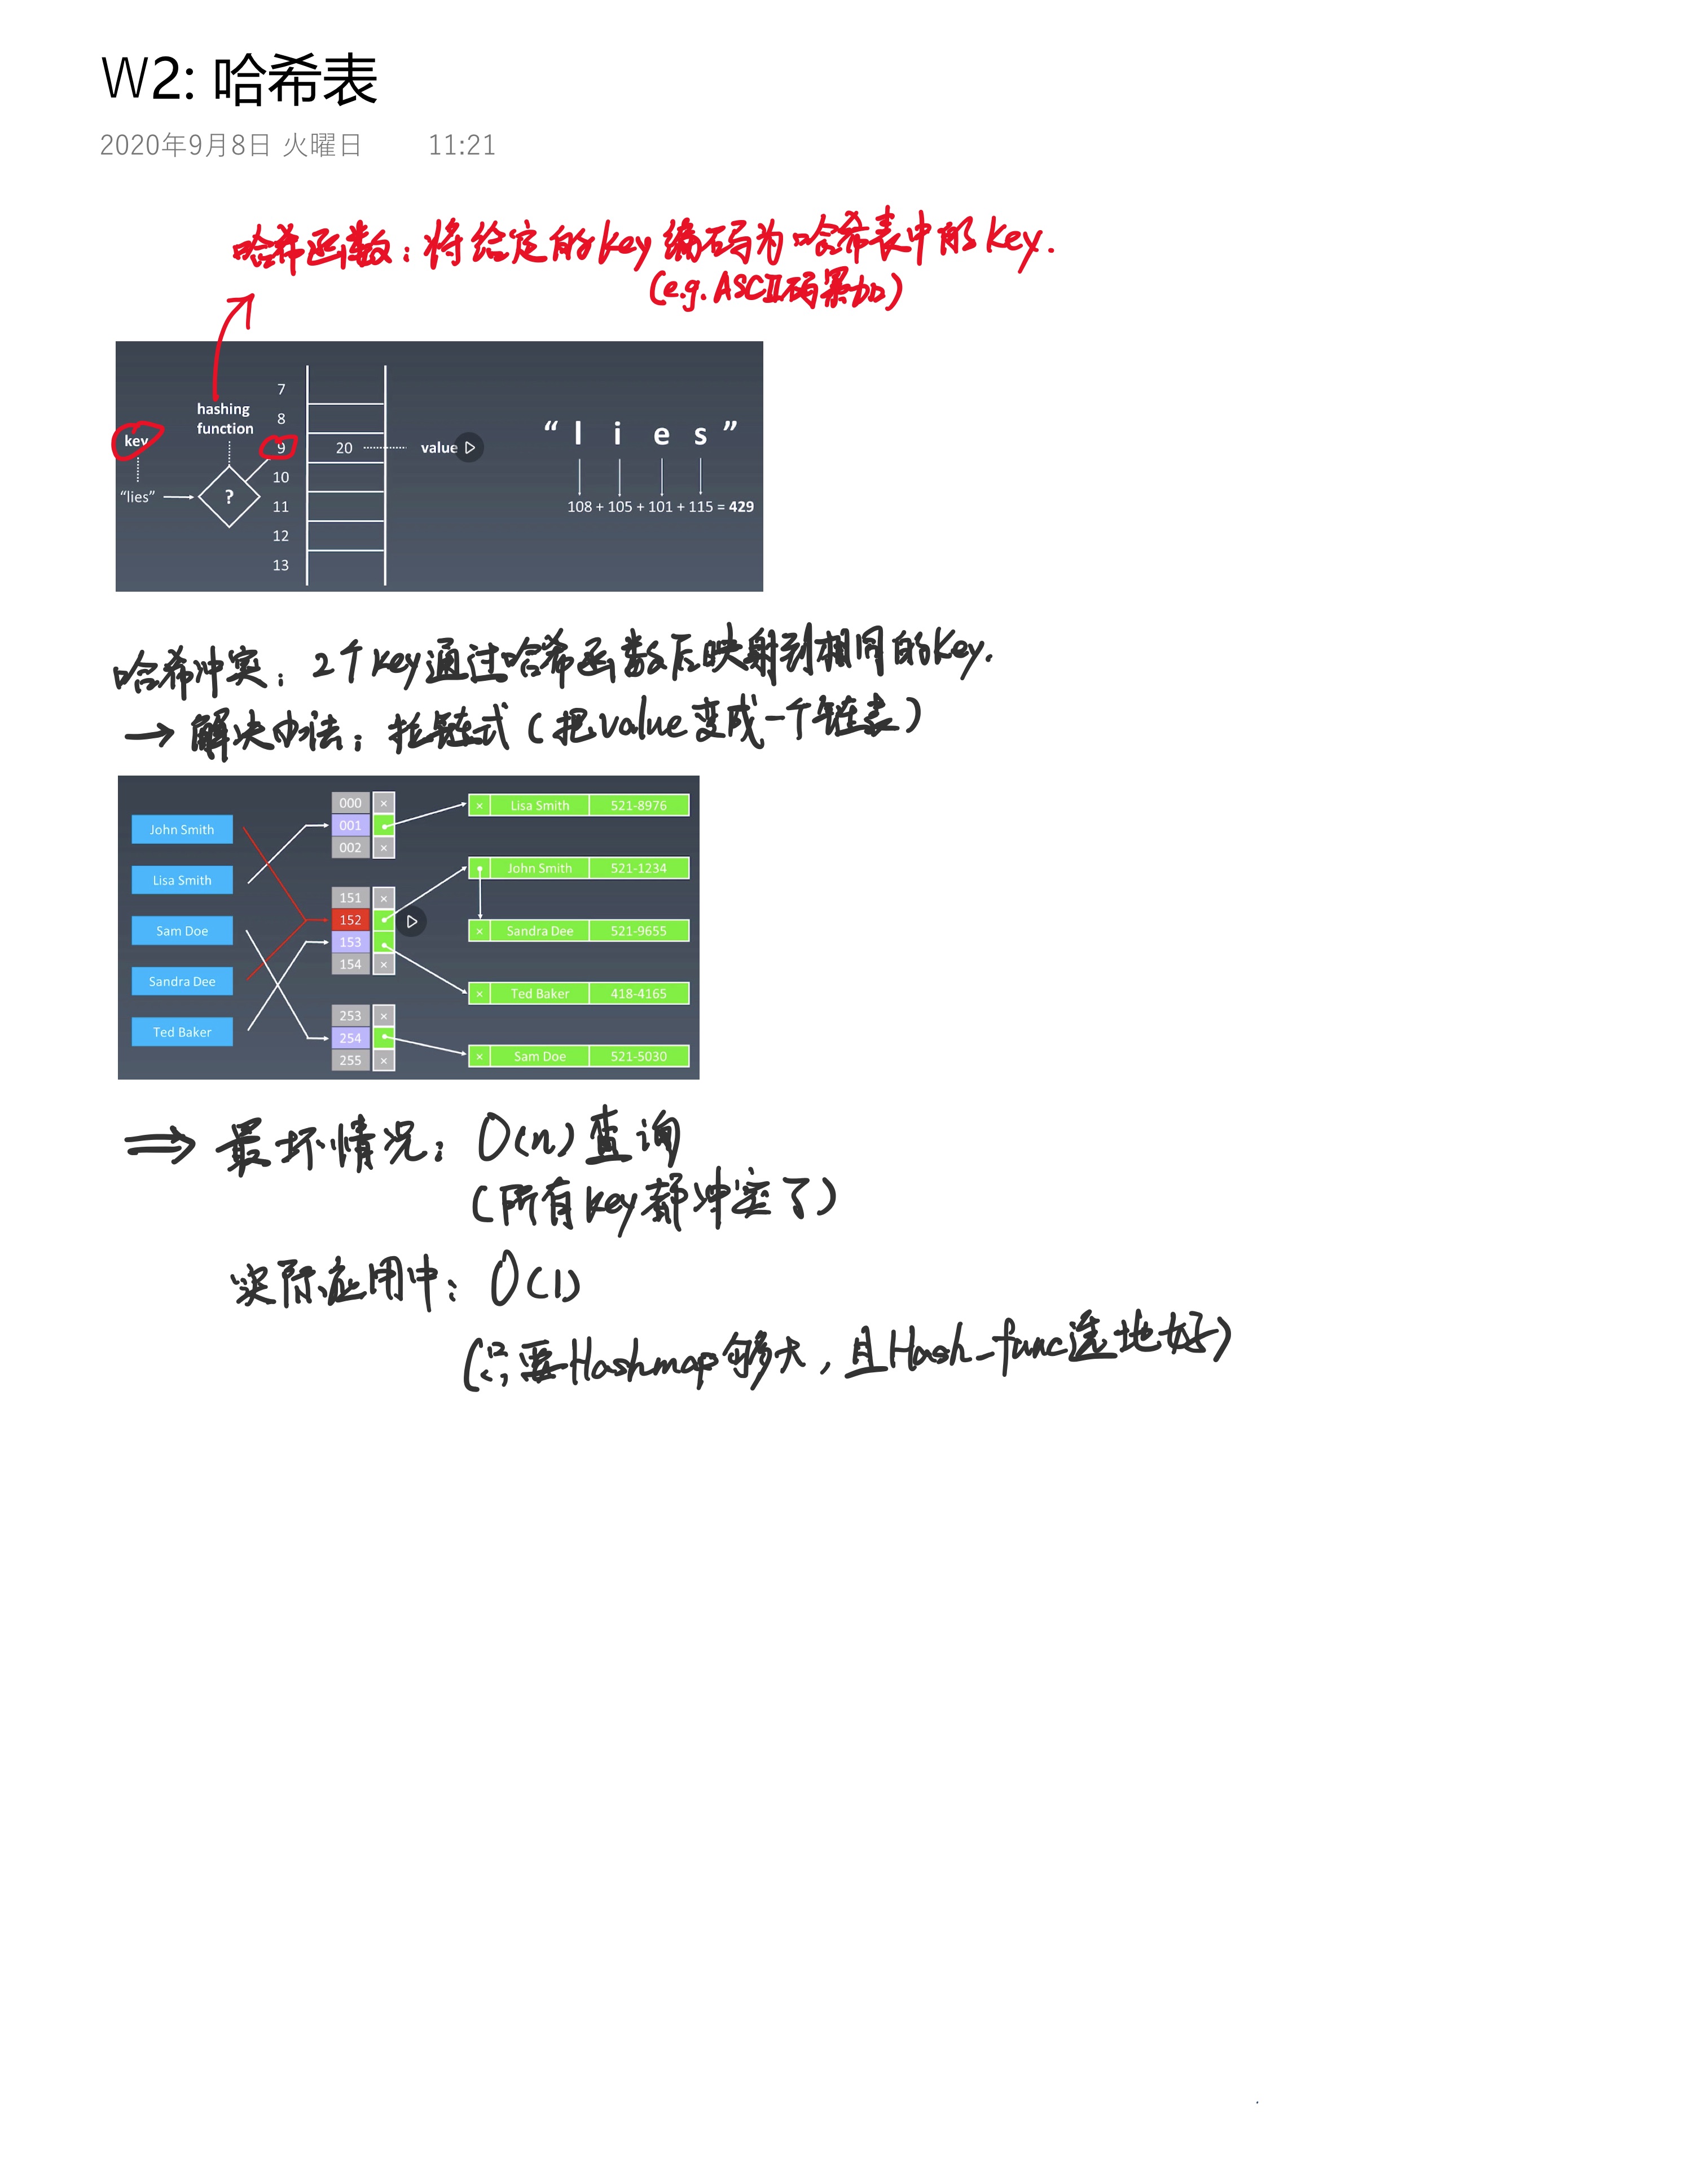 W2: 哈希表
2020年9月8日 火曜日 11:21
哈希函数：将给定的key编码为哈希表中的key.
(e.g. ASCII码累加)
7
8
9
10
11
12
13
hashing
function
key
"lies"
?
20
value
" l i e s "
108 + 105 + 101 + 115 = 429
哈希冲突：2个key通过哈希函数后映射到相同的key.
→ 解决办法：拉链式（把value变成一个链表）
John Smith
Lisa Smith
Sam Doe
Sandra Dee
Ted Baker
000 ×
001
002 ×
151 ×
152
153
154 ×
253 ×
254
255 ×
× Lisa Smith 521-8976
John Smith 521-1234
× Sandra Dee 521-9655
× Ted Baker 418-4165
× Sam Doe 521-5030
⇒ 最坏情况：O(n)查询
（所有key都冲突了）
实际应用中：O(1)
（只要Hashmap够大，且Hash_func选地好）